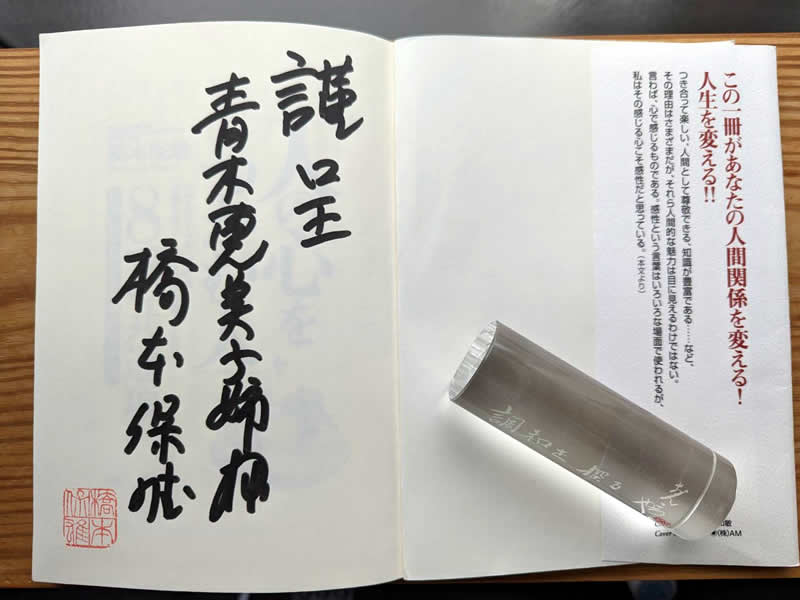 この一冊があなたの人間関係を変える!
人生を変える!!
つき合って楽しい、人間として尊敬できる、知識が豊富である……など、
その理由はさまざまだが、それら人間的な魅力は目に見えるわけではない。
言わば、心で感じるものである。感性という言葉はいろいろな場面で使われるが、
私はその感じる心こそ感性だと思っている。(本文より)
調和を探る
敏
Cover (株)AM
謹呈
青木恵美子姉
橋本保雄
橋本保雄